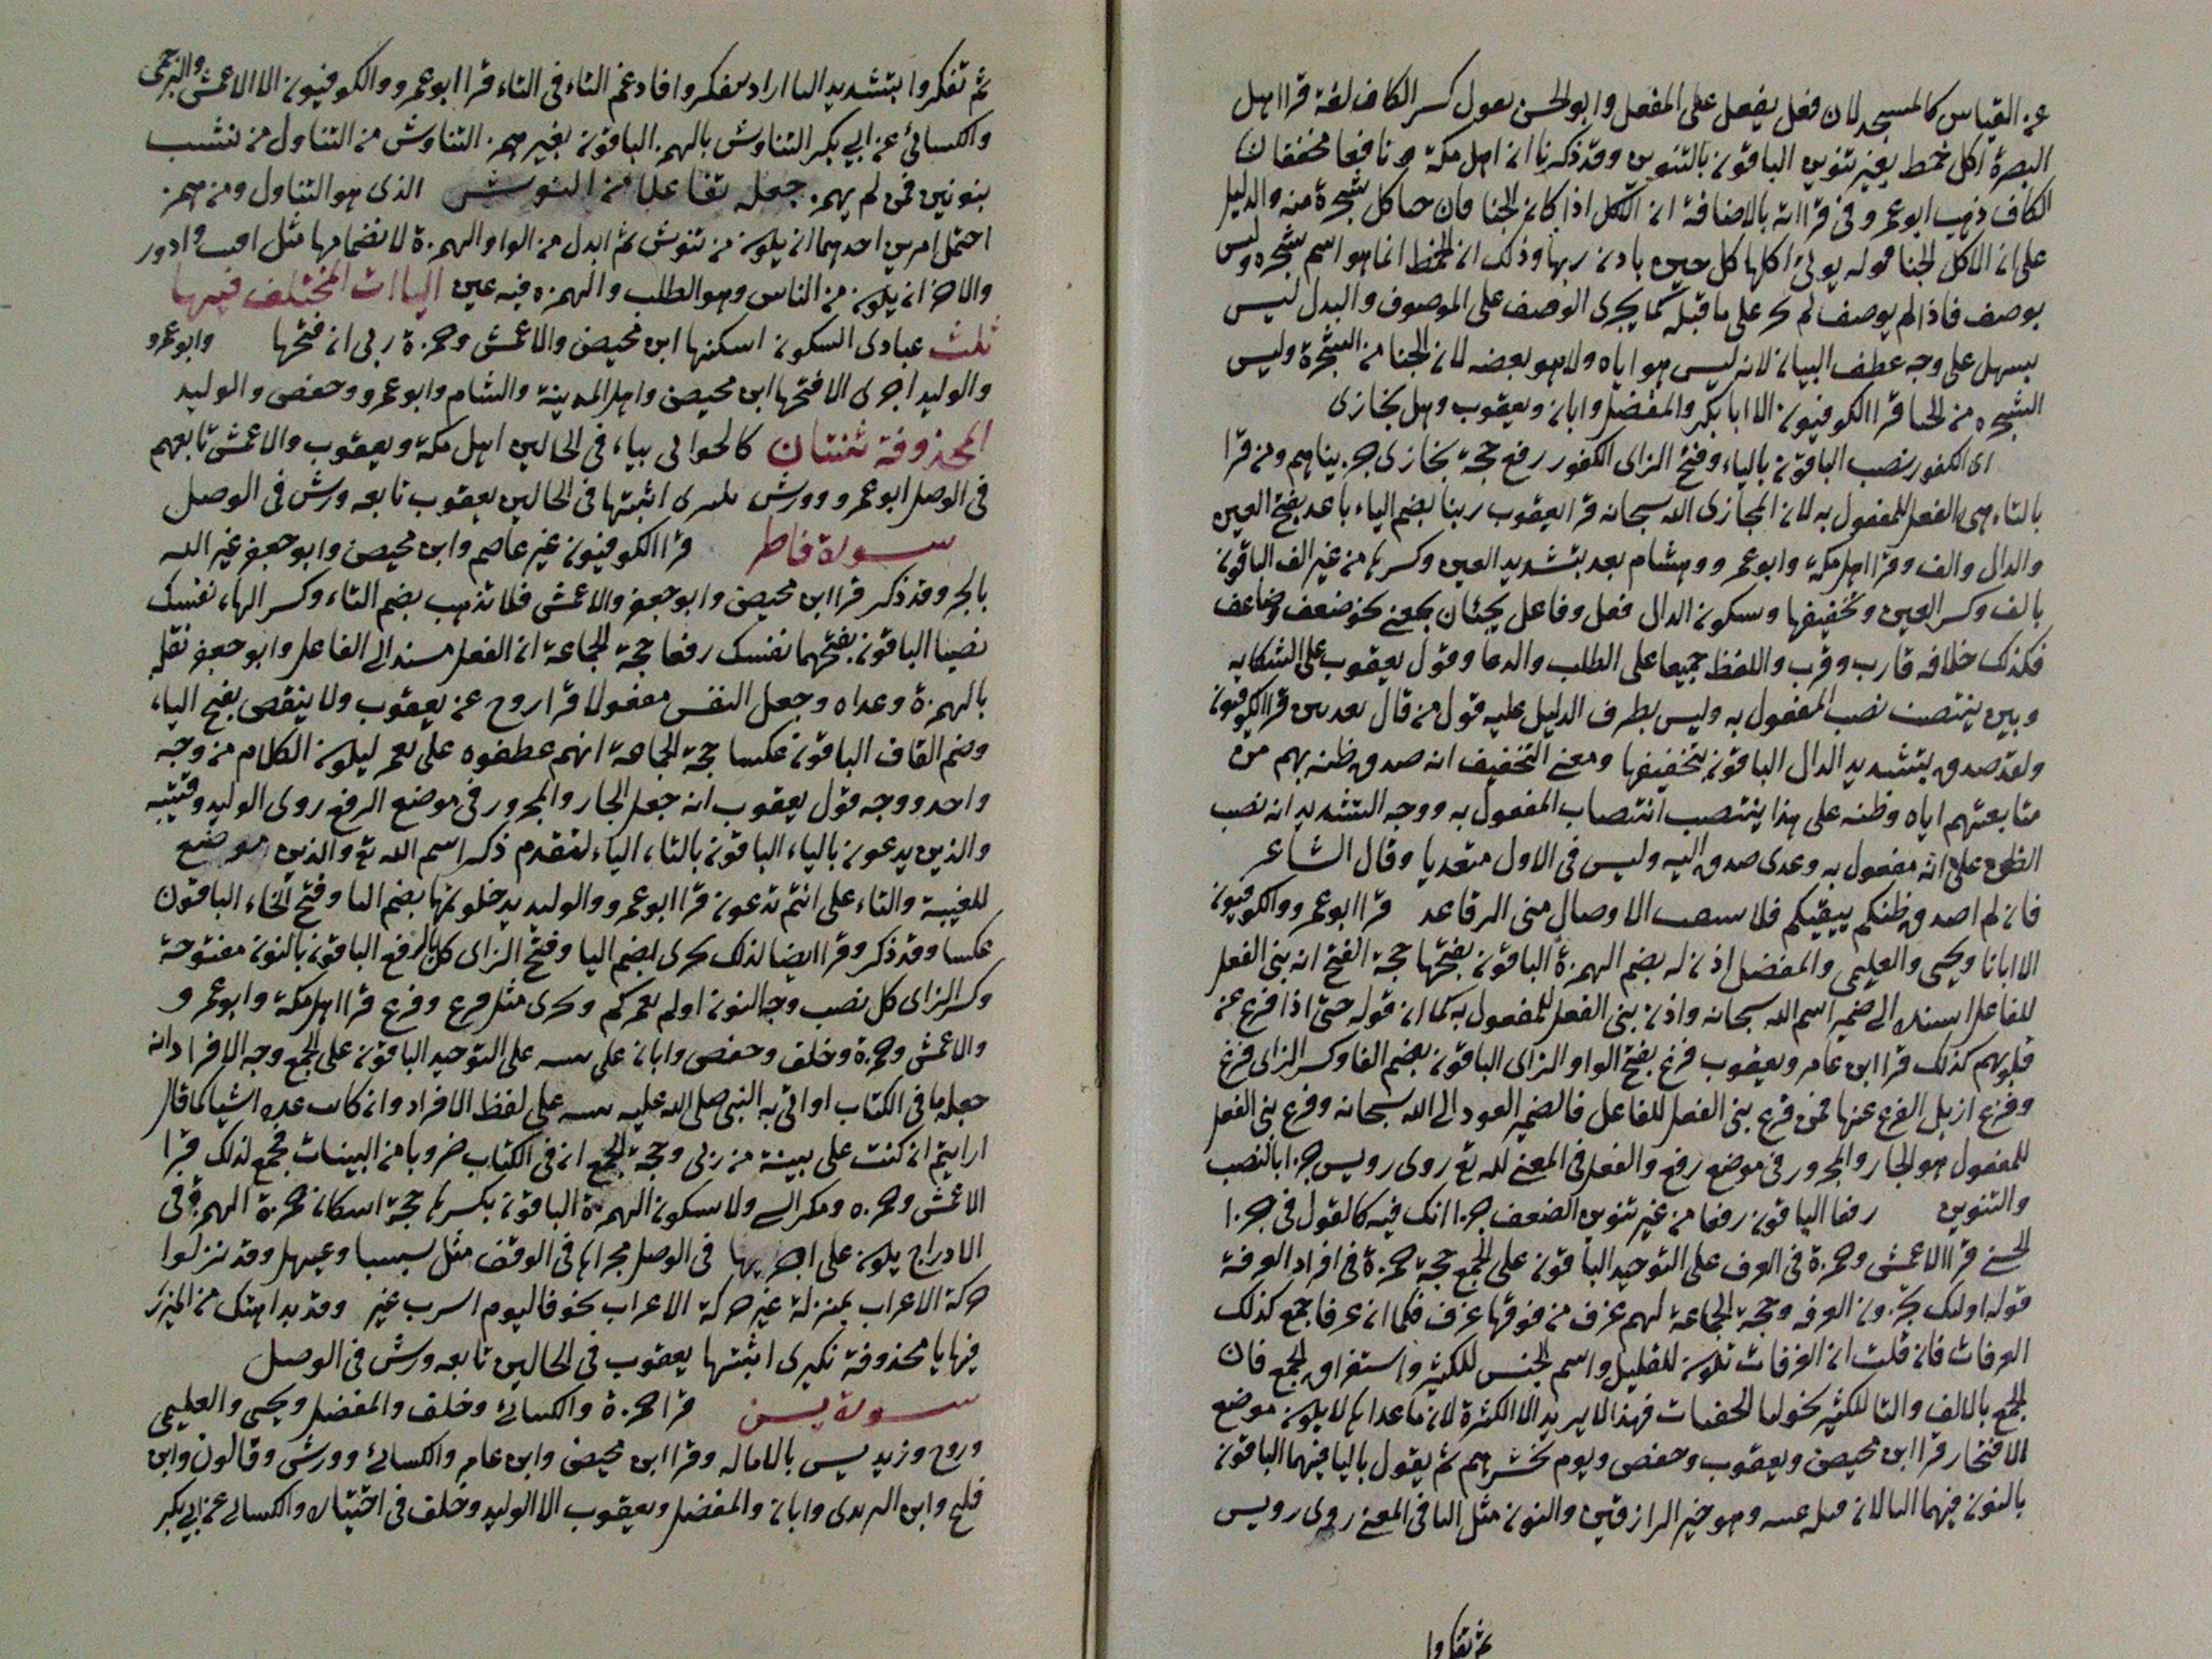 عن القياس كالمسجد لان فعل يفعل على المفعل وابو الحسن يعول كسر الكاف لغة قرا اهل
البصرة اكل خمط بغير تنوين الباقون بالتنوين وقد ذكرنا ان اهل مكة و نافعا مخففان
الكاف ذهب ابو عمرو في قراءته بالاضافة ان الاكل اذا كان الجنا فان جنا كل شجرة منه والدليل
على ان الاكل الجنا قوله يؤتى اكلها كل حين باذن ربها وذلك ان الخمط انما هو اسم شجره وليس
بوصف فاذا لم يوصف لم يجر على ما قبله كما يجرى الوصف على الموصوف والبدل ليس
بسهل على وجه عطف البيان لانه ليس هو اياه ولا هو بعضه لان الجنا من الشجرة وليس
الشجره من الجنا قرا الكوفيون الا ابا بكر والمفضل وابان ويعقوب وهل نجازى
اى الكفور نصب الباقون بالياء وفتح الزاى الكفور رفع حجة نجازى جزيناهم ومن قرا
بالتاء بنى الفعل للمفعول به لان المجازى الله سبحانه قرا يعقوب ربنا بضم الياء باعد بفتح العين
والدال والف وقرا اهل مكة وابو عمرو وهشام بعد بتشديد العين وكسرها من غير الف الباقون
بالف وكسر العين وتخفيفها وسكون الدال فعل وفاعل يجئان بمعنى نحو ضعف وضاعف
فكذلك خلافه قارب وقرب واللفظ جميعا على الطلب والدعا وقول يعقوب على الشكايه
وبين ينتصب نصب المفعول به وليس بظرف الدليل عليه قول من قال بعد بين قرا الكوفيون
ولقد صدق بتشديد الدال الباقون بتخفيفها ومعنى التخفيف انه صدق ظنه بهم من
متابعتهم اياه وظنه على هذا ينتصب انتصاب المفعول به ووجه التشديد انه نصب
الظن على انه مفعول به وعدى صدق اليه وليس في الاول متعديا وقال الشاعر
فان لم اصدق ظنكم بيقيكم فلا سقت الاوصال منى الرقاعد قرا ابو عمرو والكوفيون
الا ابانا ويحيى والعليمى والمفضل اذن له بضم الهمزة الباقون بفتحها حجة الفتح انه بنى الفعل
للفاعل اسند الى ضمير اسم الله سبحانه واذن بنى الفعل للمفعول به كما ان قوله حتى اذا فزع عن
قلوبهم كذلك قرا ابن عامر ويعقوب فزع بفتح الواو الزاى الباقون بضم الفا وكسر الزاى فزع
وفزع ازيل الفزع عنها فمن فزع بنى الفعل للفاعل فالضمير العود الى الله سبحانه وفزع بنى الفعل
للمفعول هو الجار والمجرور في موضع رفع والفعل في المعنى لله تع روى رويس جزا بالنصب
والتنوين رفعا الباقون رفعا من غير تنوين الضعف جزا انك فيه كالقول في جزا
الحسنى قرا الاعمش وحمزة في الغرف على التوحيد الباقون على الجمع حجة حمزة في افراد الغرفة
قوله اولئك يجزون الغرفه وحجة الجماعة لهم غرف من فوقها غرف فكما ان غرفا جمع كذلك
الغرفات فان قلت ان الغرفات تكون للقليل واسم الجنس للكثير واستغراق الجمع فان
الجمع بالالف والتا للكثير نحو لنا الجفنات فهذا لا يريد الا الكثرة لان ما عداها لا يكون موضع
الافتخار قرا ابن محيصن ويعقوب وحفص ويوم يحشرهم ثم يقول باليا فيهما الباقون
بالنون فيهما اليا لان قبله وهو خير الرازقين والنون مثل اليا في المعنى روى رويس
ثم تفكروا
ثم تفكروا بتشديد التا اراد تتفكروا فادغم التاء في التاء قرا ابو عمرو والكوفيون الا الاعمش والبرجمى
والكسائى عن ابى بكر التناوش بالهمز الباقون بغير همز التناوش من التناول من نشب
بنونين فمن لم يهمز جعله تفاعلا من النوش الذى هو التناول ومن همز
احتمل امرين احدهما ان يكون من تنوش ثم ابدل من الواو الهمزة لانضمامها مثل اقت وادور
والاخر ان يكون من النأش وهو الطلب والهمزه فيه عين الياات المختلف فيها
ثلث عبادى السكون اسكنها ابن محيصن والاعمش وحمزة ربى ان فتحها وابو عمرو
والوليد اجرى الا فتحها ابن محيصن واهل المدينة والشام وابو عمرو وحفص والوليد
المحذوفة ثنتان كالجوابى بياء في الحالين اهل مكة ويعقوب والاعمش تابعهم
في الوصل ابو عمرو وورش نكيرى اثبتها في الحالين يعقوب تابعه ورش في الوصل
سورة فاطر قرا الكوفيون غير عاصم وابن محيصن وابو جعفر غير الله
بالجر وقد ذكر قرا ابن محيصن وابو جعفر والاعمش فلا تذهب بضم التاء وكسر الهاء نفسك
نصبا الباقون بفتحهما نفسك رفعا حجة الجماعة ان الفعل مسند الى الفاعل وابو جعفر نقله
بالهمزة وعداه وجعل النفس مفعولا قرا روح عن يعقوب ولا ينقص بفتح الياء
وضم القاف الباقون عكسا حجة الجماعة انهم عطفوه على يعمر ليكون الكلام من وجه
واحد ووجه قول يعقوب انه جعل الجار والمجرور في موضع الرفع روى الوليد وقتيبه
والذين يدعون بالياء الباقون بالتاء الياء لتقدم ذكر اسم الله تع والذين موضع
للغيبة والتاء على انتم تدعون قرا ابو عمرو والوليد يدخلونها بضم اليا وفتح الخاء الباقون
عكسا وقد ذكر وقرا ايضا لذلك يجزى بضم اليا وفتح الزاى كل بالرفع الباقون بالنون مفتوحة
وكسر الزاى كل نصب وجه النون اولم نعمركم ويجزى مثل فزع وفزع قرا اهل مكة وابو عمرو
والاعمش وحمزة وخلف وحفص وابان على بينه على التوحيد الباقون على الجمع وجه الافراد انه
جعل ما في الكتاب او اتى به النبى صلى الله عليه بينه على لفظ الافراد وان كانت عده اشيا كما قال
ارايتم ان كنت على بينة من ربى وحجة الجمع ان في الكتاب ضروبا من البينات فجمع لذلك قرا
الاعمش وحمزه ومكر السئ ولا سكون الهمزة الباقون بكسرها حجة اسكان حمزة الهمزة في
الادراج يكون على اجريها في الوصل مجراها في الوقف مثل سبسبا وعيهل وقد نزلوا
حركة الاعراب بمنزلة غير حركة الاعراب نحو فاليوم اشرب غير وقد بدا هنك من المئزر
فيها يا محذوفة نكيرى اثبتها يعقوب في الحالين تابعه ورش في الوصل
سورة يس قرا حمزة والكسائى وخلف والمفضل ويحيى والعليمى
وروح وزيد يس بالاماله وقرا ابن محيصن وابن عامر والكسائى وورش وقالون وابن
فليح وابن اليزيدى وابان والمفضل ويعقوب الا الوليد وخلف في اختياره والكسائى عن ابى بكر